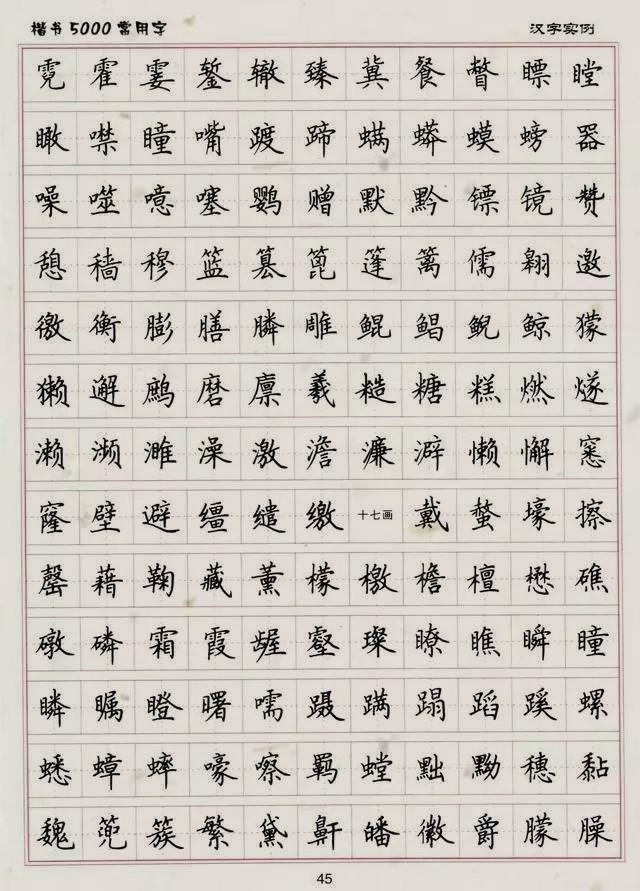 楷书5000常用字 汉字实例
霓 霍 霎 錾 辙 臻 冀 餐 瞥 瞟 瞠
瞰 噤 瞳 嘴 踱 蹄 螨 蟒 蟆 螃 器
噪 噬 噫 噻 鹦 赠 默 黔 镖 镜 赞
憩 穑 穆 篮 篡 篦 篷 篱 儒 翱 邀
徼 衡 膨 膳 膦 雕 鲲 鲳 鲵 鲸 獴
獭 邂 鹧 磨 廪 羲 糙 糖 糕 燃 燧
濑 濒 濉 澡 激 澹 濂 澼 懒 懈 窸
窿 壁 避 缰 缱 缴 十七画 戴 螫 壕 擦
罄 藉 鞠 藏 薰 檬 檄 檐 檀 懋 礁
礅 磷 霜 霞 龌 壑 璨 瞭 瞧 瞬 瞳
瞵 瞩 瞪 曙 嚅 蹑 蹒 蹋 蹈 蹊 螺
蟋 蟑 蟀 嚎 嚓 羁 螳 黜 黝 穗 黏
魏 篼 簇 繁 黛 鼾 皤 徽 爵 朦 臊
45